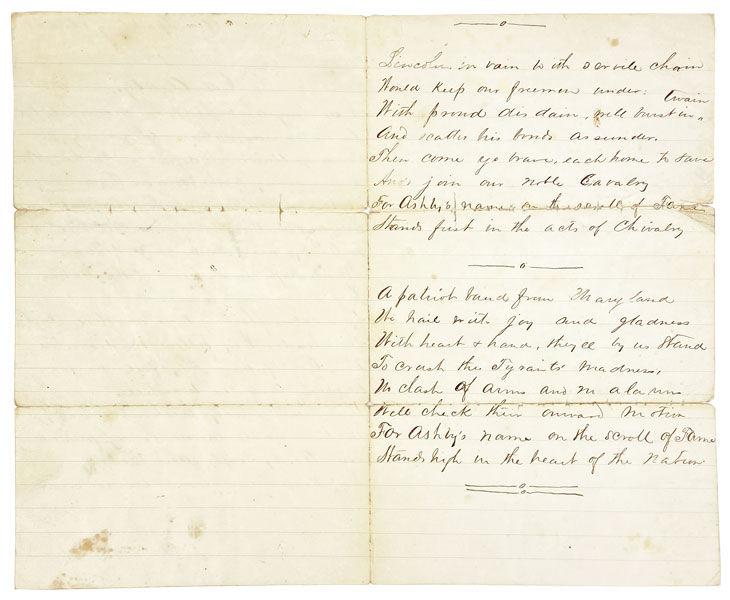 Lincoln in vain with servile chain
Would keep our freemen under:
With proud disdain, we'll burst in twain
And scatter his bonds assunder.
Then come ye brave, each home to save
And join our noble Cavalry
For Ashby's name on the scroll of Fame
Stands first in the acts of Chivalry
A patriot band from Maryland
We hail with joy and gladness
With heart & hand, they'll by us stand
To crush the Tyrants' madness,
No clash of arms and no alarms
Will check their onward motion
For Ashby's name on the scroll of Fame
Stands high in the heart of the Nation.